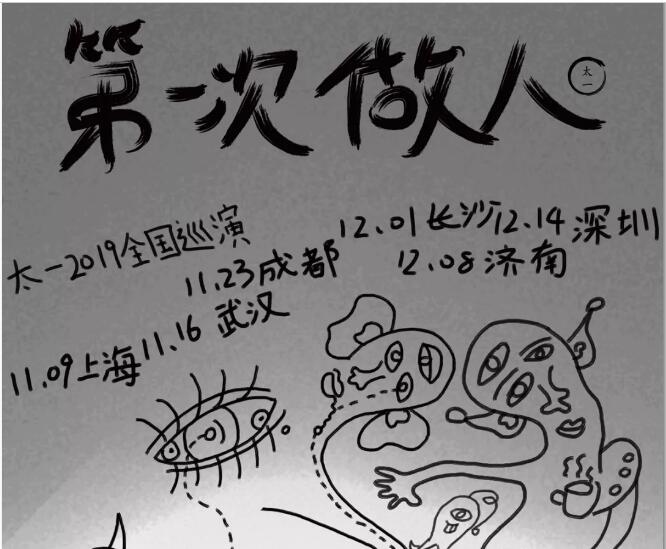 第一次做人
太一
太一2019全国巡演
11.09上海
11.16武汉
11.23成都
12.01长沙
12.08济南
12.14深圳